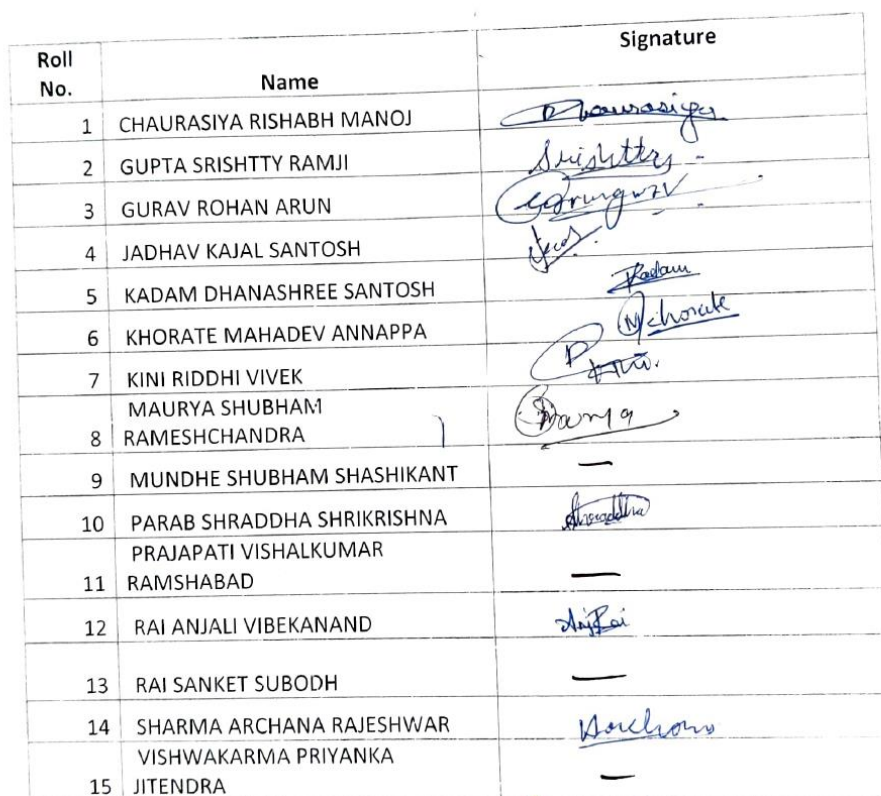 Roll No. Name Signature
1 CHAURASIYA RISHABH MANOJ Chaurasiya
2 GUPTA SRISHTTY RAMJI Srishtty
3 GURAV ROHAN ARUN
4 JADHAV KAJAL SANTOSH
5 KADAM DHANASHREE SANTOSH Kadam
6 KHORATE MAHADEV ANNAPPA Mkhorate
7 KINI RIDDHI VIVEK
MAURYA SHUBHAM
8 RAMESHCHANDRA
9 MUNDHE SHUBHAM SHASHIKANT —
10 PARAB SHRADDHA SHRIKRISHNA Shraddha
PRAJAPATI VISHALKUMAR
11 RAMSHABAD —
12 RAI ANJALI VIBEKANAND AnjRai
13 RAI SANKET SUBODH —
14 SHARMA ARCHANA RAJESHWAR Archana
VISHWAKARMA PRIYANKA
15 JITENDRA —